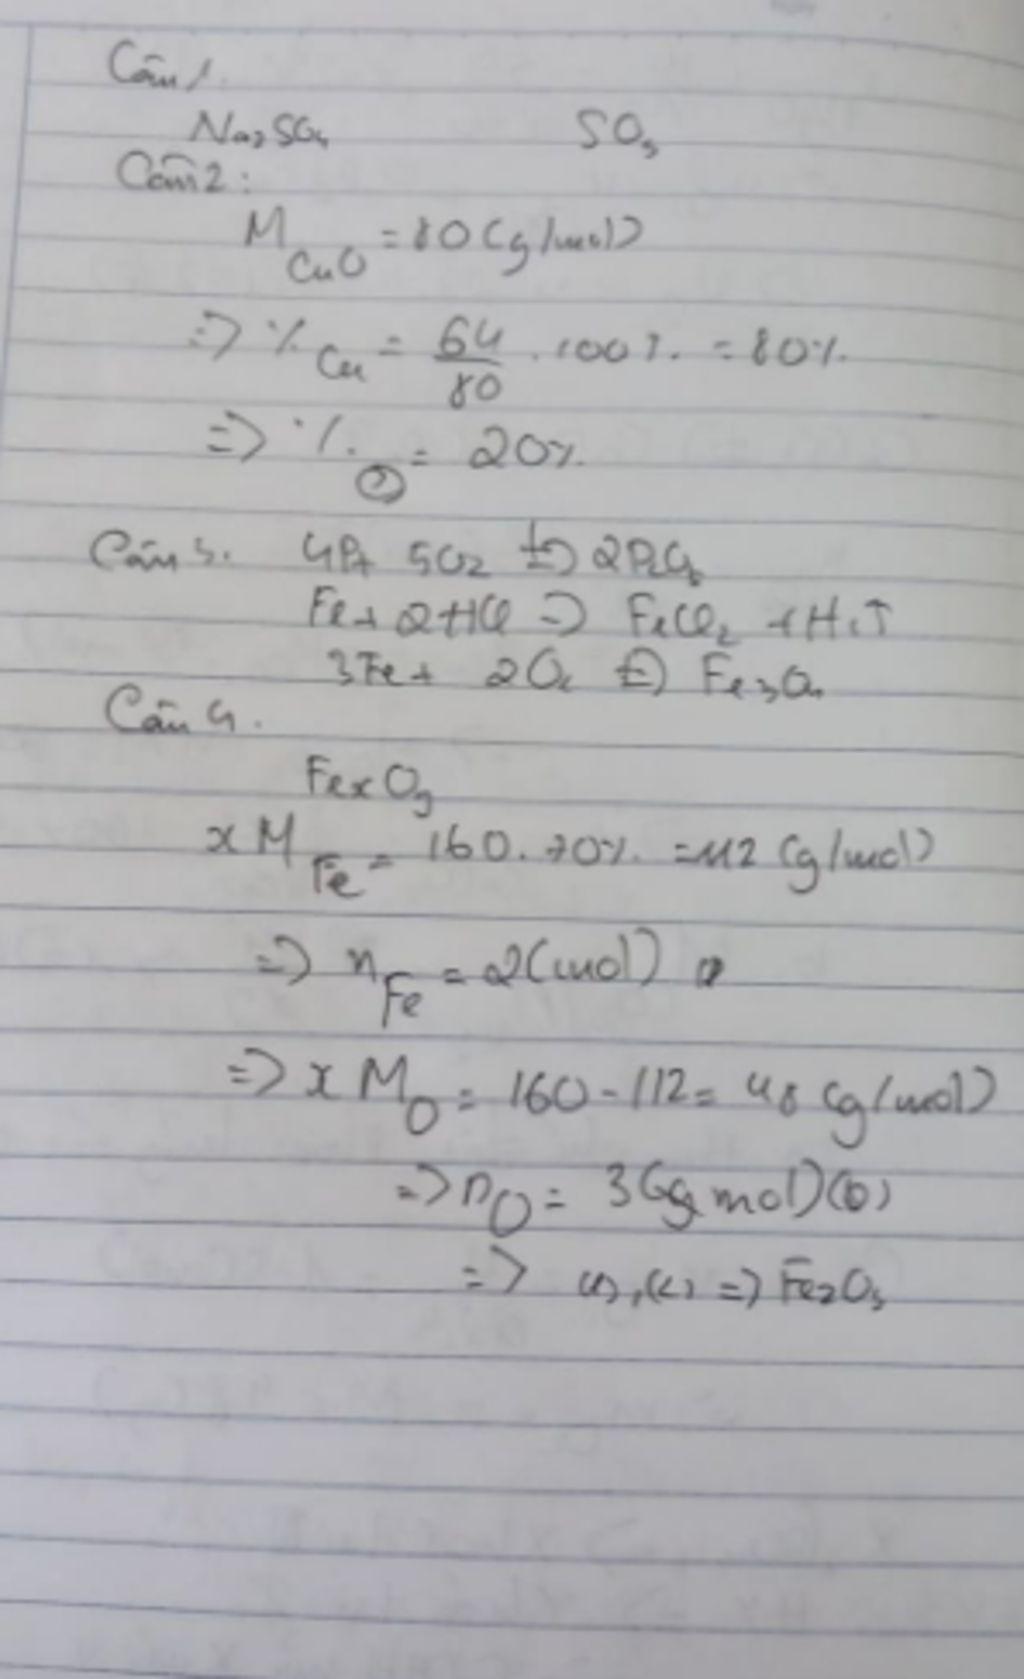 Câu 1.
Na₂SO₄ SO₃
Câu 2:
M CuO = 80 (g/mol)
=> % Cu = 64/80 . 100% = 80%
=> % O = 20%
Câu 3. 4P + 5O₂ t°→ 2P₂O₅
Fe + 2HCl => FeCl₂ + H₂↑
3Fe + 2O₂ t°→ Fe₃O₄
Câu 4.
FexOy
x M Fe = 160.70% = 112 (g/mol)
=> n Fe = 2 (mol)
=> x M O = 160 - 112 = 48 (g/mol)
=> n O = 3 mol)
=> (1), (2) => Fe₂O₃